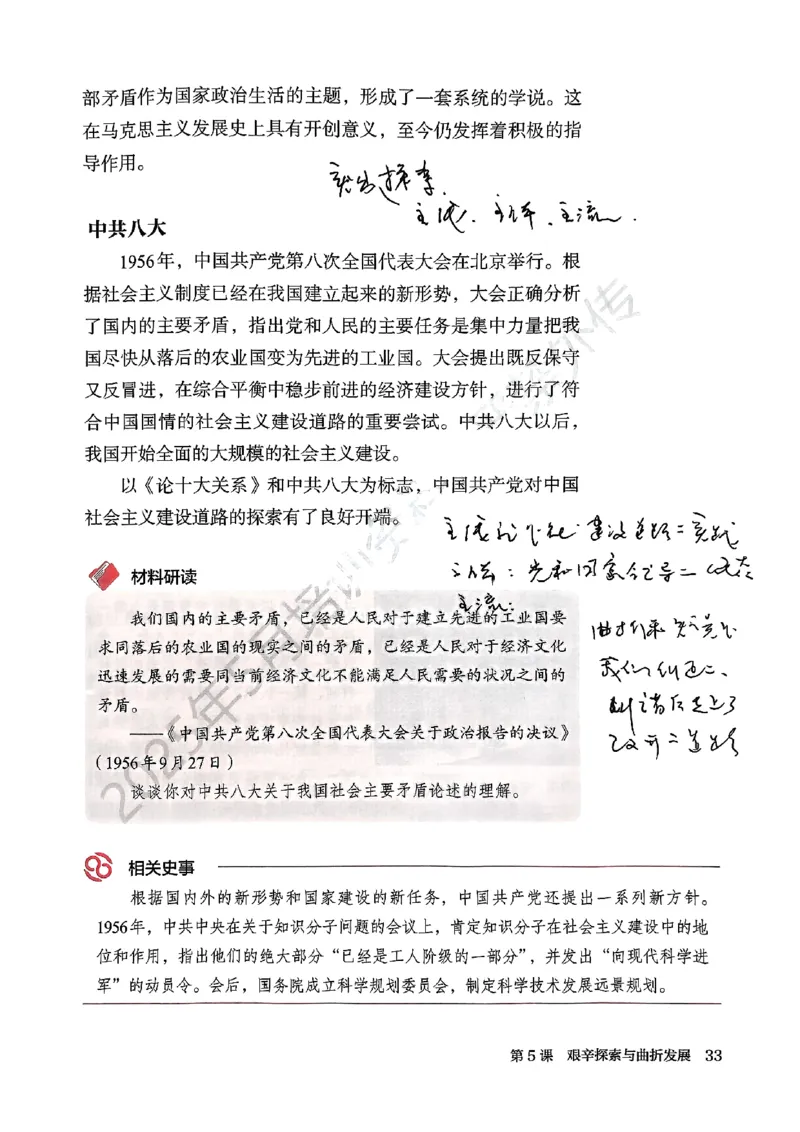 部矛盾作为国家政治生活的主题，形成了一套系统的学说。这
在马克思主义发展史上具有开创意义，至今仍发挥着积极的指
导作用。
突出探索
主线、主体、主流。
中共八大
1956年，中国共产党第八次全国代表大会在北京举行。根
据社会主义制度已经在我国建立起来的新形势，大会正确分析
了国内的主要矛盾，指出党和人民的主要任务是集中力量把我
国尽快从落后的农业国变为先进的工业国。大会提出既反保守
又反冒进，在综合平衡中稳步前进的经济建设方针，进行了符
合中国国情的社会主义建设道路的重要尝试。中共八大以后，
我国开始全面的大规模的社会主义建设。
以《论十大关系》和中共八大为标志，中国共产党对中国
社会主义建设道路的探索有了良好开端。
材料研读
主流：
我们国内的主要矛盾，已经是人民对于建立先进的工业国要
求同落后的农业国的现实之间的矛盾，已经是人民对于经济文化
迅速发展的需要同当前经济文化不能满足人民需要的状况之间的
矛盾。
——《中国共产党第八次全国代表大会关于政治报告的决议》
（1956年9月27日）
谈谈你对中共八大关于我国社会主要矛盾论述的理解。
相关史事
根据国内外的新形势和国家建设的新任务，中国共产党还提出一系列新方针。
1956年，中共中央在关于知识分子问题的会议上，肯定知识分子在社会主义建设中的地
位和作用，指出他们的绝大部分“已经是工人阶级的一部分”，并发出“向现代科学进
军”的动员令。会后，国务院成立科学规划委员会，制定科学技术发展远景规划。
第5课 艰辛探索与曲折发展 33